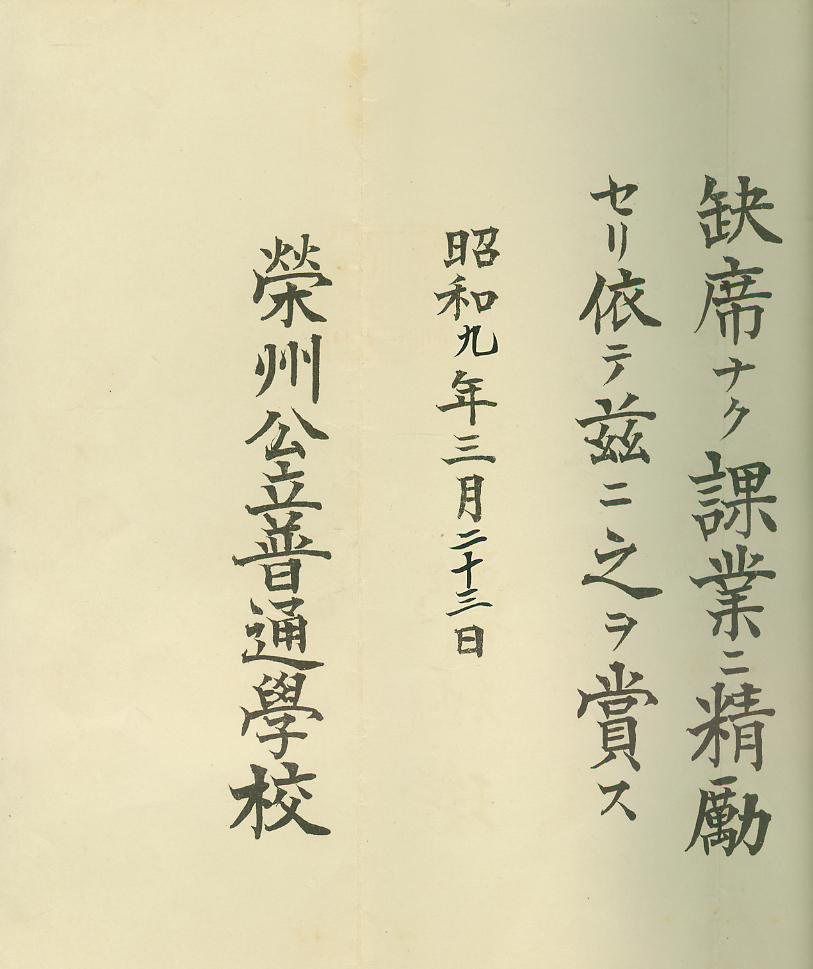 缺席ナク課業ニ精勵
セリ依テ茲ニ之ヲ賞ス
昭和九年三月二十三日
榮州公立普通學校